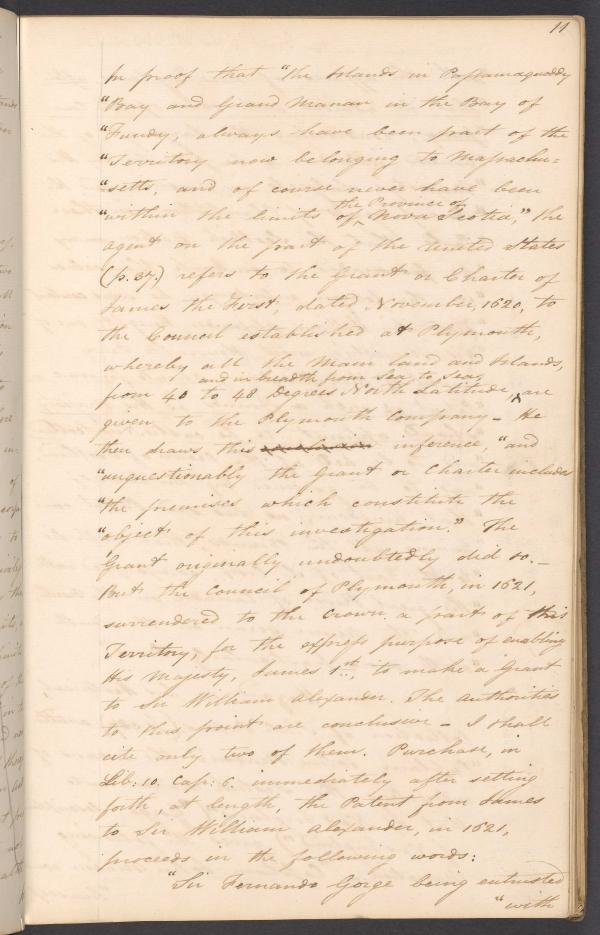 11
In proof that "the Islands in Passamaquoddy
"Bay and Grand Manan in the Bay of
"Fundy, always have been part of the
"Territory now belonging to Massachu=
"setts, and of course never have been
the Province of
"within the limits of ^ Nova Scotia," the
agent on the part of the United States
(p. 37.) refers to the Grant or Charter of
James the First, dated November, 1620, to
the Council established at Plymouth,
whereby all the Main land and Islands,
and in breadth from Sea to Sea,
from 40 to 48 degrees North Latitude ^ are
given to the Plymouth Company – He
then draws this inference, "and
"unquestionably the Grant or Charter includes
"the premises which constitute the
"object of this investigation." The
Grant originally undoubtedly did so. –
But the Council of Plymouth, in 1621,
surrendered to the Crown a part of this
Territory, for the express purpose of enabling
His Majesty, James 1st, to make a Grant
to Sir William Alexander. The authorities
to this point are conclusive – I shall
cite only two of them. Purchase, in
Lib: 10. Cap: 6. immediately after setting
forth, at length, the Patent from James
to Sir William Alexander, in 1621,
proceeds in the following words:
"Sir Fernando Gorge being entrusted
"with